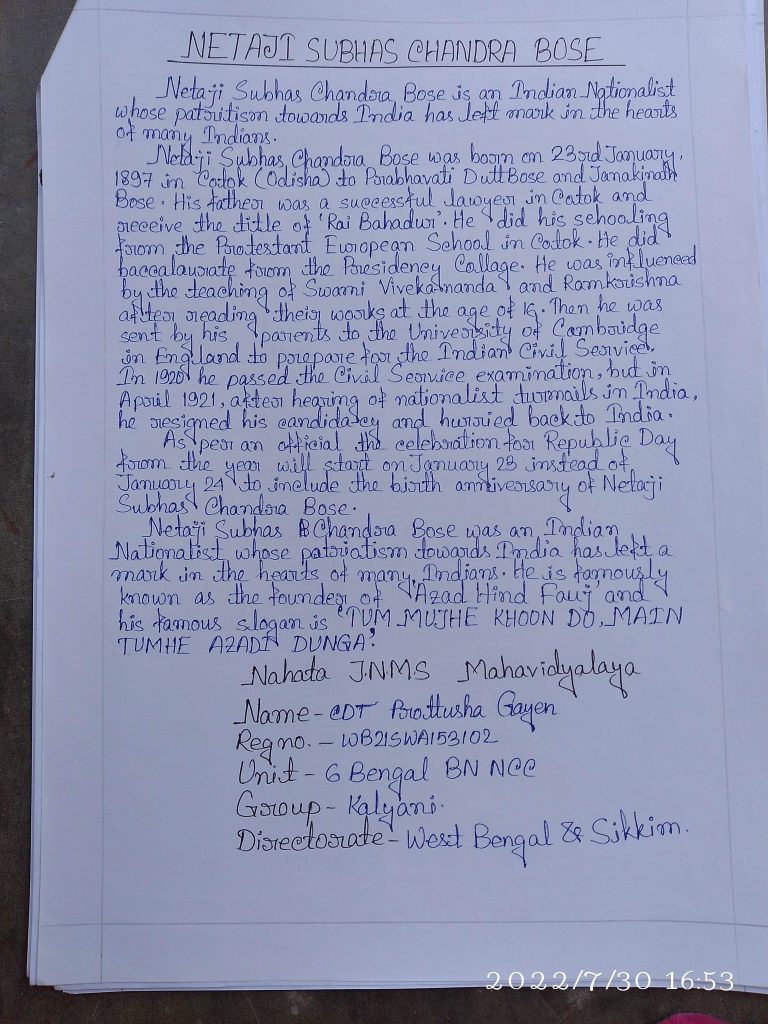 NETAJI SUBHAS CHANDRA BOSE
Netaji Subhas Chandra Bose is an Indian Nationalist
whose patritism towards India has left mark in the hearts
of many Indians.
Netaji Subhas Chandra Bose was born on 23rd January,
1897 in Cotok (Odisha) to Prabhavati Dutt Bose and Janakinath
Bose. His father was a successful lawyer in Cotok and
receive the title of 'Rai Bahadur'. He did his schooling
from the Protestant European School in Cotok. He did
baccalaurate from the Presidency Collage. He was influenced
by the teaching of Swami Vivekananda and Ramkrishna
after reading their works at the age of 16. Then he was
sent by his parents to the University of Cambridge
in England to prepare for the Indian Civil Service.
In 1920 he passed the Civil Service examination, but in
April 1921, after hearing of nationalist turmails in India,
he resigned his candidacy and hurried back to India.
As per an official the celebration for Republic Day
from the year will start on January 23 instead of
January 24 to include the birth anniversary of Netaji
Subhas Chandra Bose.
Netaji Subhas Chandra Bose was an Indian
Nationalist whose patriatism towards India has left a
mark in the hearts of many Indians. He is famously
known as the founder of 'Azad Hind Fauj' and
his famous slogan is 'TUM MUJHE KHOON DO, MAIN
TUMHE AZADI DUNGA'.
Nahata J.N.M.S Mahavidyalaya
Name - CDT Prottusha Gayen
Reg no. - WB21SWA153102
Unit - 6 Bengal BN NCC
Group - Kalyani.
Directorate - West Bengal & Sikkim.
2022/7/30 16:53